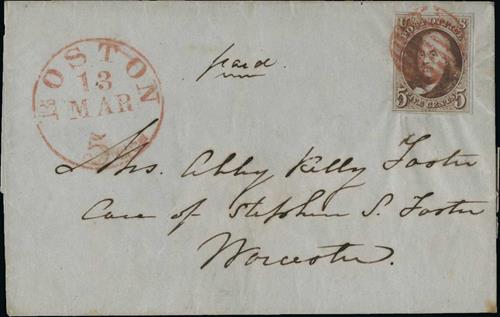 BOSTON
13
MAR
5 cts
paid
POST OFFICE
5 FIVE CENTS 5
Mrs. Abby Kelly Foster
Care of Stephen S. Foster
Worcester.